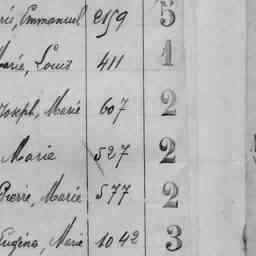 rié, Emmanuel 2159 5
Marie, Louis 411 1
Joseph, Marie 607 2
Marie 527 2
Pierre, Marie 577 2
Eugéna, Marie 1042 3